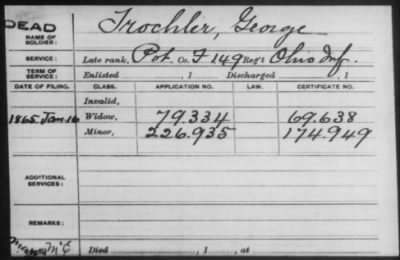 DEAD
NAME OF SOLDIER: Trochler, George
SERVICE: Late rank, Pvt. Co. F 149 Reg't Ohio Inf.
TERM OF SERVICE: Enlisted , 1 Discharged , 1
DATE OF FILING. CLASS. APPLICATION NO. LAW. CERTIFICATE NO.
Invalid,
1865 Jan. 16 Widow, 79.334 69.638
Minor, 226.935 174.949
ADDITIONAL SERVICES:
REMARKS:
Died , 1 , at